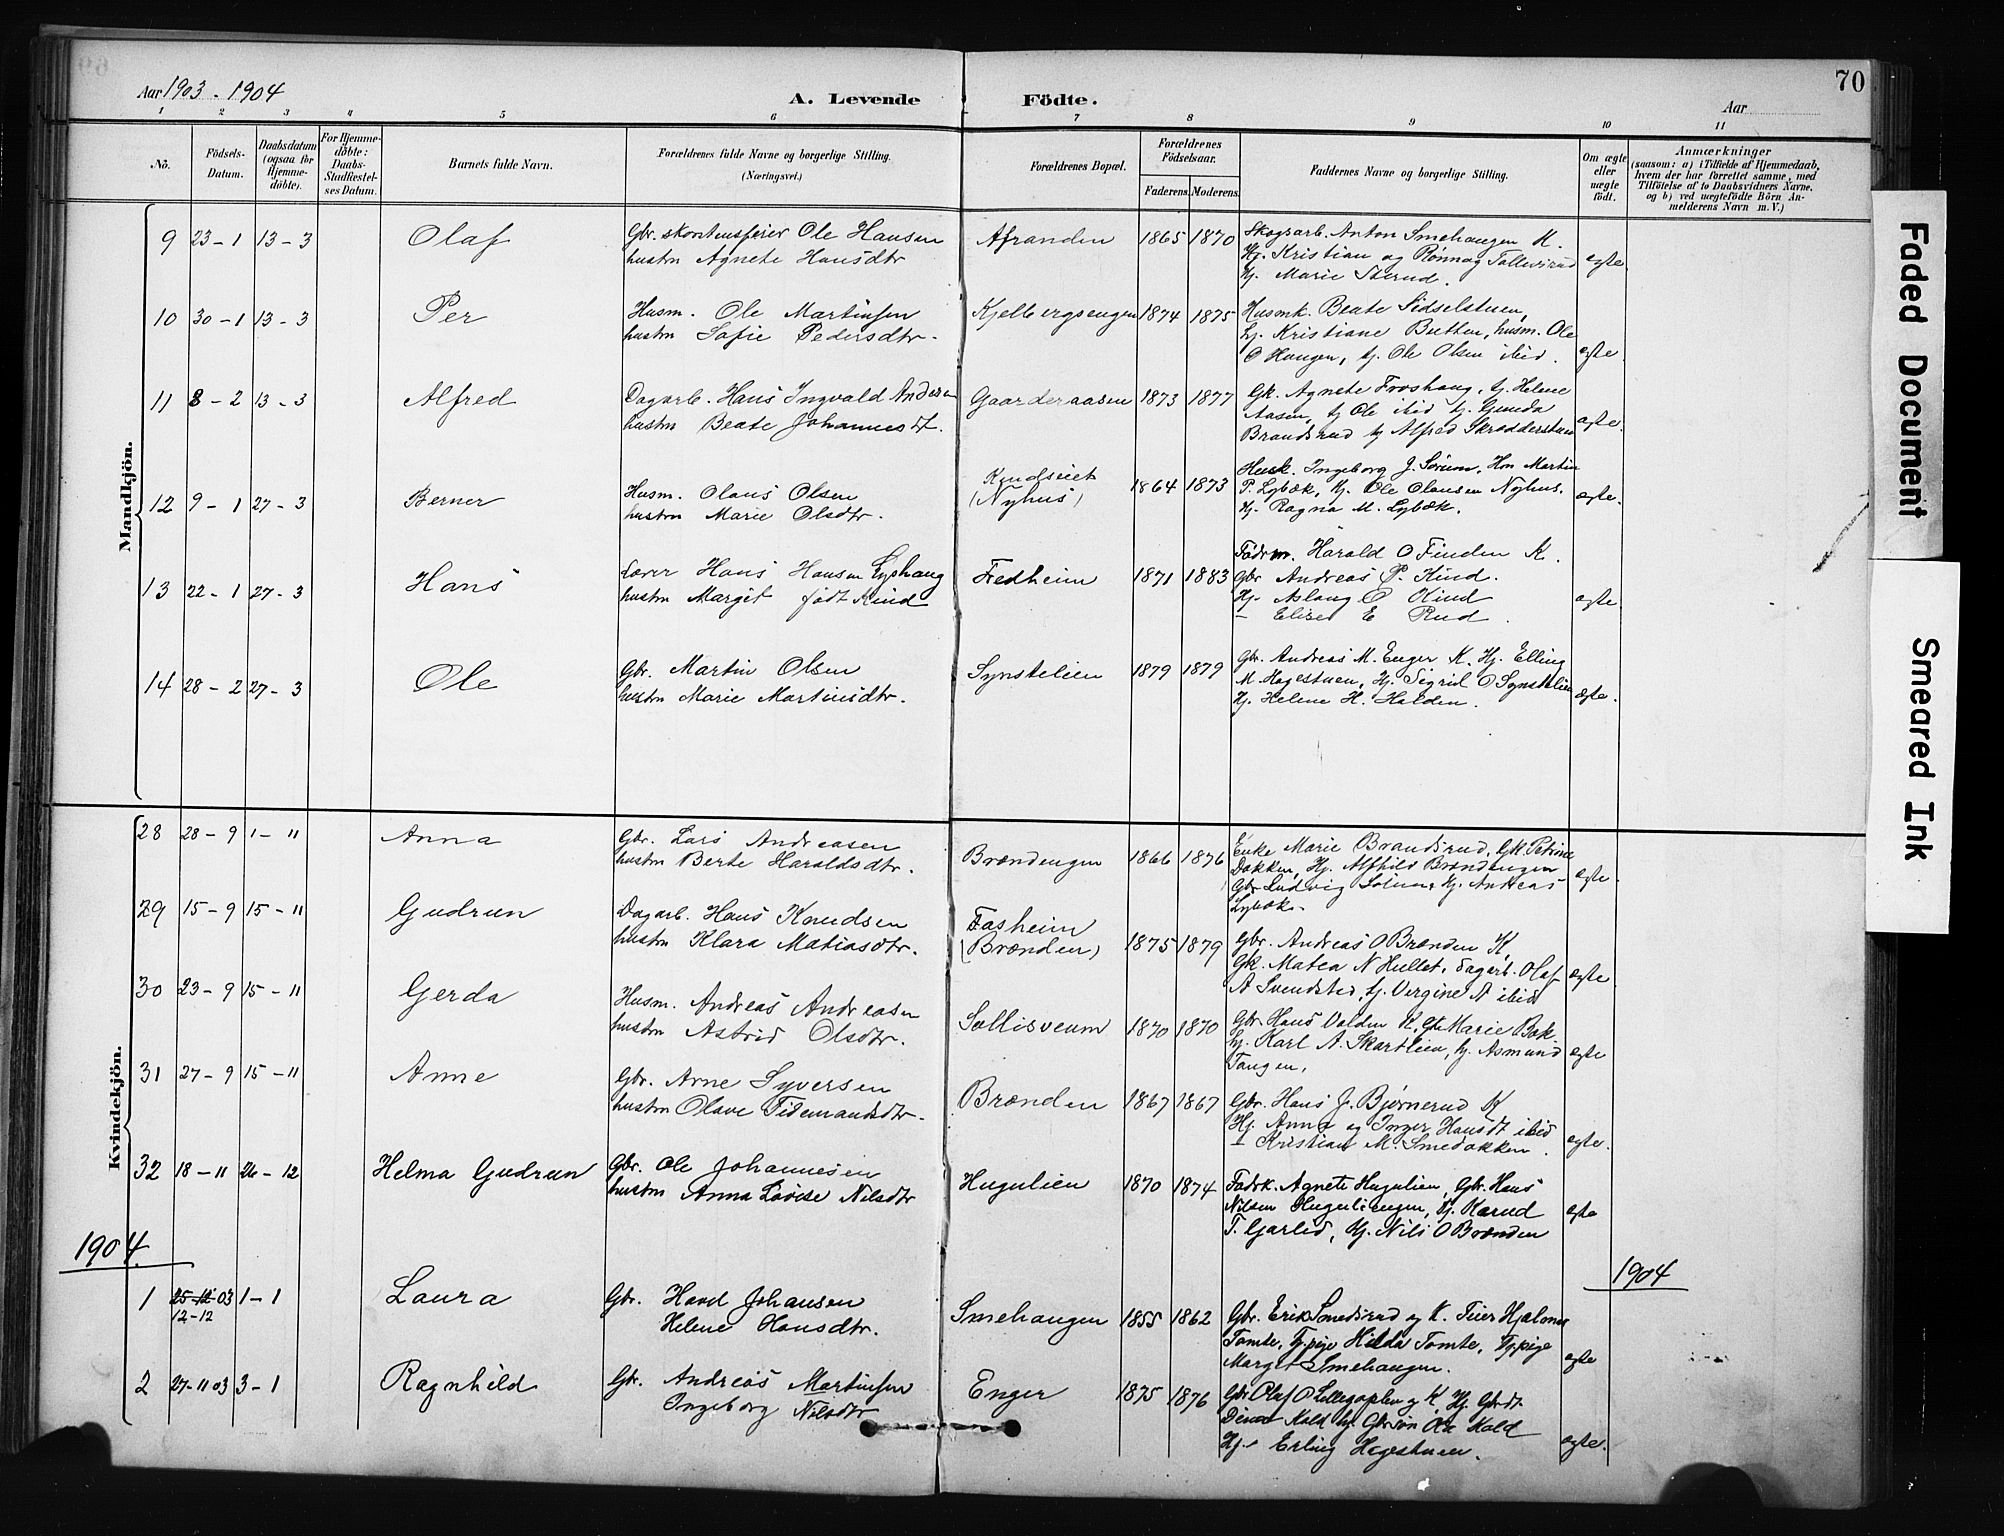 Aar 1903 - 1904
A. Levende Födte.
Aar
70
1 2 3 4 5 6 7 8 9 10 11
No.
Födsels-Datum.
Daabsdatum (ogsaa for Hjemme-döbte).
For Hjemme-döbte: Daabs-Stadfæstel-ses Datum.
Barnets fulde Navn.
Forældrenes fulde Navne og borgerlige Stilling. (Næringsvei.)
Forældrenes Bopæl.
Forældrenes Födselsaar.
Faderens. Moderens.
Faddernes Navne og borgerlige Stilling.
Om ægte eller uægte födt.
Anmærkninger
(saasom: a) i Tilfælde af Hjemmedaab,
hvem der har forrettet samme, med
Tilföielse af to Daabsvidners Navne.
og b) ved uægtefödte Börn An-
melderens Navn m. V.)
Mandkjön.
9 23-1 13-3 Olaf Gbr. skontensfører Ole Hansen Afranden 1865 1870 Skogsarb. Anton Smehaugen K.
hustru Agnete Hansdtr Hj. Kristian og Rønnog Tollersrud ægte
Hj. Marie Sterud.
10 30-1 13-3 Per Husm. Ole Martinsen Kjelbergsengen 1874 1875 Husmk. Beate Sidselstuen,
hustru Sofie Pedersdtr. tj. Kristiane Butten, husm. Ole
O Haugen, tj. Ole Olsen ibid. ægte.
11 8-2 13-3 Alfred Dagarb. Hans Ingvald Andersen Gaarderaasen 1873 1877 Gk. Agnete Froshaug, tj. Helene
hustru Beate Johannesdt. Aasen, tj Ole ibid tj. Gunda
Brandsrud tj Alfred Skrædderstuen ægte.
12 9-1 27-3 Berner Husm. Olaus Olsen (Nyhus) 1864 1873 Husk. Ingeborg J. Sørum, Hm Martin
hustru Marie Olsdtr. P. Lybæk, tj. Ole Olausen Nyhus. ægte.
Hj. Ragna M. Lybæk.
13 22-1 27-3 Hans Lærer Hans Hansen Lyshaug Fredheim 1871 1883 Føderm. Harald O Finden K.
hustru Margit født Kind Gbr Andreas P. Kind.
Hj. Aslaug P Kind ægte.
- Elise E Rud.
14 28-2 27-3 Ole Gbr. Martin Olsen Synstelien 1879 1879 Gbr. Andreas M. Enger K. Hj. Elling
hustru Marie Martinsdtr. M. Hagestuen, Hj. Sigrid O Synstelien ægte.
Hj. Helene H. Halden.
Kvindekjön.
28 28-9 1-11 Anna Gbr. Lars Andreasen Brændengen 1866 1876 Enke Marie Brandsrud, Gk. Petrine
hustru Berte Haraldsdtr. Dokken, Hj. Alfhild Brændengen ægte.
Gbr Ludvig Solum, Hj. Andreas
Lybæk.
29 15-9 15-11 Gudrun Dagarb. Hans Knudsen Fasheim 1875 1879 Gbr. Andreas O Brænden K,
hustru Klara Matiasdtr. (Brænden) Gk. Matea N Hullet, dagarb. Olaf ægte
A Svendsted, tj. Vergine A ibid
30 23-9 15-11 Gerda Husm. Andreas Andreasen Sollisveum 1870 1870 Gbr. Hans Volden K, Gk Marie Bak
hustru Astrid Olsdtr. tj. Karl A. Skartlien, tj. Asmund ægte
Tangen,
31 27-9 15-11 Anne Gbr. Arne Syversen Brænden 1867 1867 Gbr. Hans J. Bjørnerud K
hustru Olave Tidemandsdtr. Hj. Anna og Inger Hansdt ibid
- Kristian M. Smedokken. ægte.
32 18-11 26-12 Helma Gudrun Gbr. Ole Johannesen Hugulien 1870 1874 Fødrk. Agnete Hugulien, Gbr. Hans
hustru Anna Lovise Nilsdtr Nilsen Huguliengen, Hj. Karud ægte
T. Garlid, Hj. Nils O Brænden
1904. 1904
1 25-12 03 12-12 1-1 Laura Gbr. Havd Johansen Smehaugen 1855 1862 Gbr. Erik Smedsrud og K. Feier Hjalmar
Helene Hansdtr. Tomte, Tj.pige Hilda Tomte, Tj.pige
Margit Smehaugen. ægte
2 27-11 03 3-1 Ragnhild Gbr. Andreas Martinsen Enger 1875 1876 Gbr. Olaf O Lillegoplen og K Hj. Gbrdt
Ingeborg Nilsdtr Dina Kold hj. Gbrsøn Ole Kold
Hj. Erling Hagestuen. ægte.
Faded Document
Smeared Ink